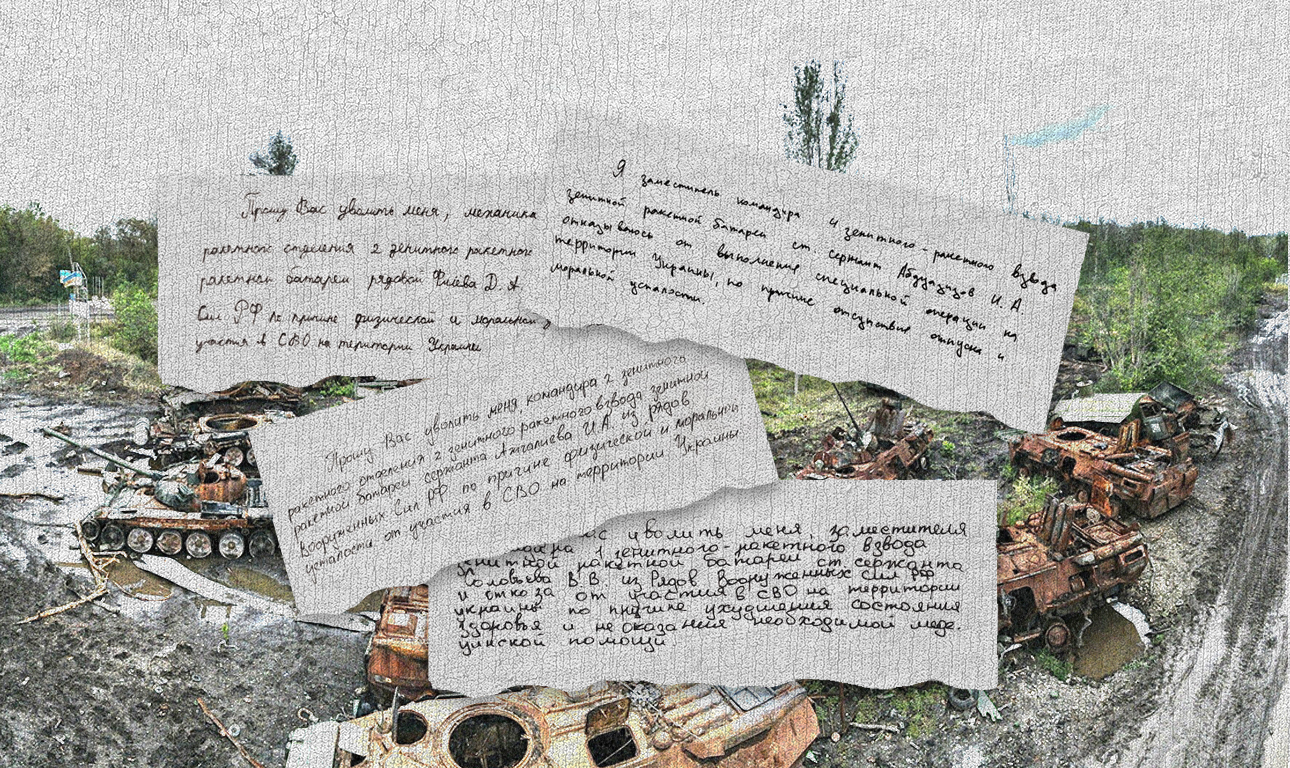 Прошу Вас уволить меня, механика
ракетного отделения 2 зенитного ракетного
ракетной батареи рядовой Фиёва Д. А.
Сил РФ по причине физической и моральной
участия в СВО на територии Украины
Я заместитель командира зенитного-ракетного взвода
зенитной ракетной батареи ст. сержант Абдулазизов И. А.
отказываюсь от выполнение специальной операции на
территории Украины, по причине отсутствия отпуска и
моральной усталости.
Прошу Вас уволить меня, командира 2 зенитного
ракетного отделения 2 зенитного ракетного взвода зенитной
ракетной батареи сержанта Амгалиева И.А. из рядов
Вооруженных сил РФ по причине физической и моральной
усталости от участия в СВО на территории Украины
уволить меня, заместителя
1 зенитного-ракетного взвода
зенитной ракетной батареи ст. сержанта
Соловьева В.В. из Рядов Вооруженных сил РФ
и отказа от участия в СВО на территории
украины по причине ухудшения состояния
здоровья и не оказания необходимой меде-
цинской помощи.